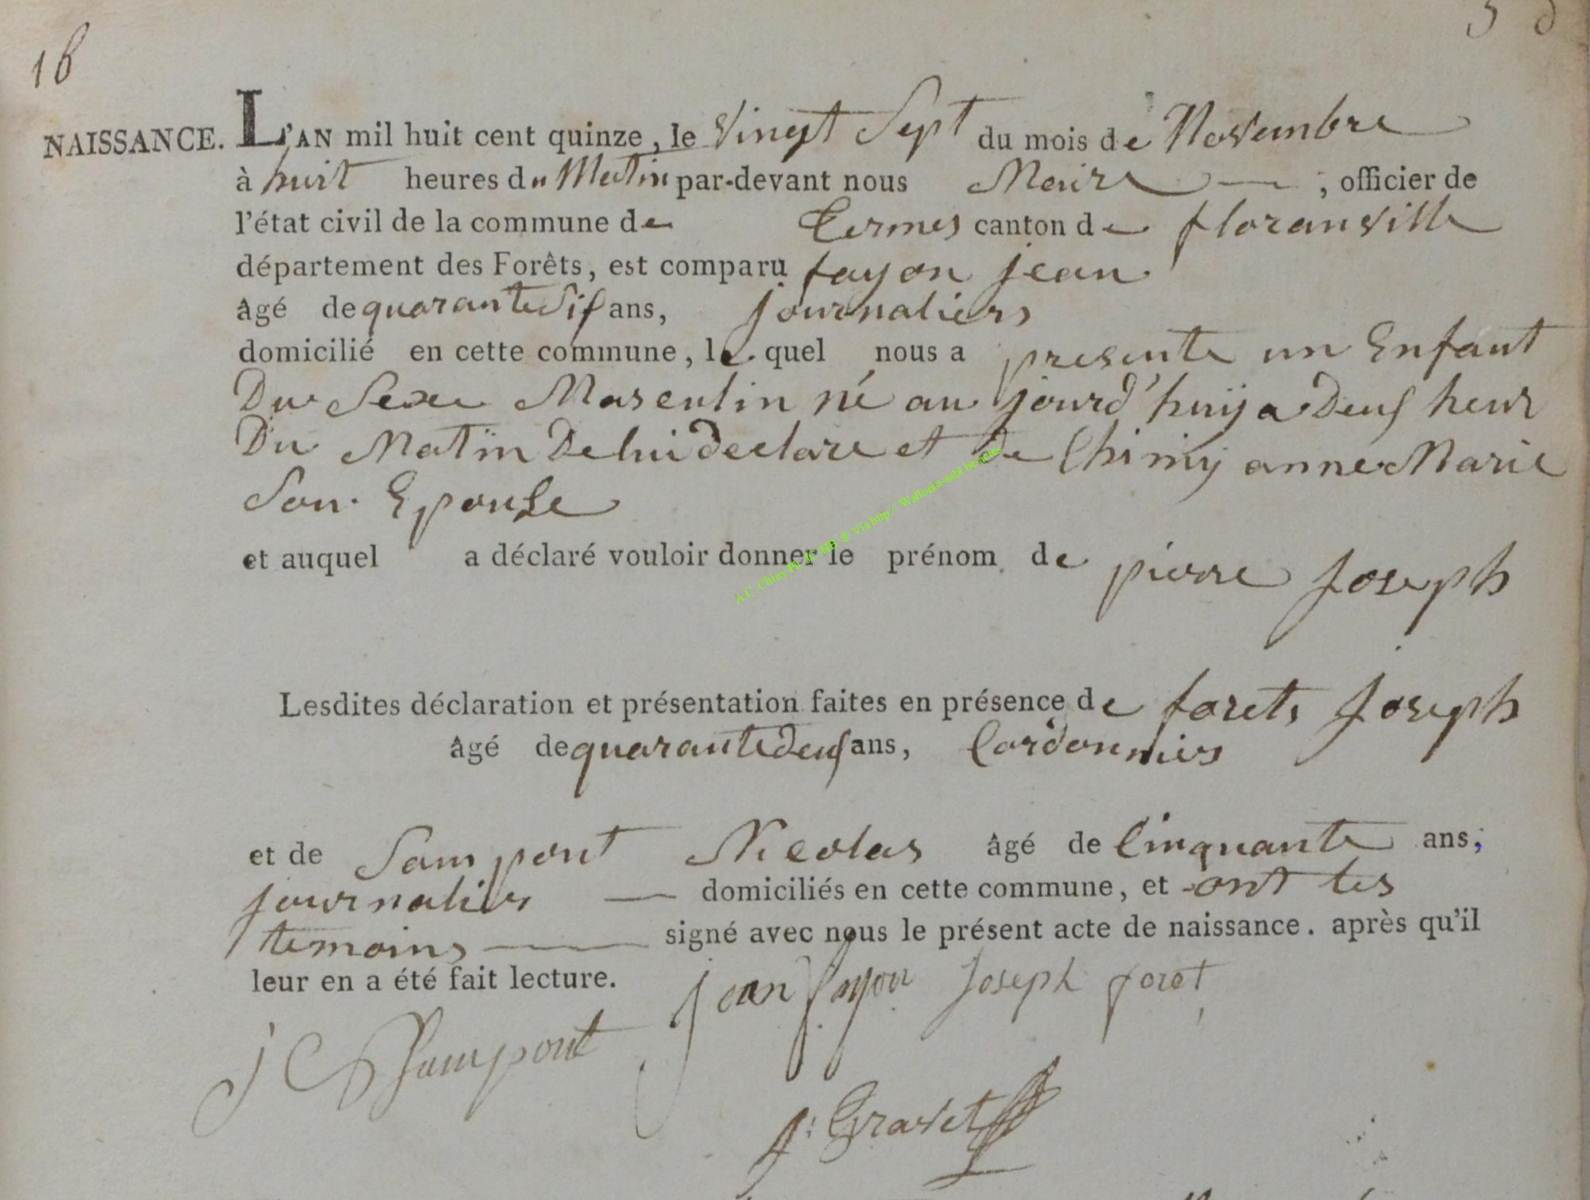 16
NAISSANCE. L'AN mil huit cent quinze, le Vingt Sept du mois de Novembre
à huit heures du Matin par-devant nous Maire ; officier de
l'état civil de la commune de Termes canton de floranville
département des Forêts, est comparu fayon jean
âgé de quarante Sif ans, journaliers
domicilié en cette commune, le quel nous a presente un Enfant
Du Sexe Masculin né au jourd'huÿ a Deuf heur
Du Matin De lui declare et de Chiniÿ anne Marie
Son Epouse
et auquel a déclaré vouloir donner le prénom de pierre Joseph
Lesdites déclaration et présentation faites en présence de forets Joseph
âgé de quarante deuf ans, Cordonniers
et de Sampont Nicolas âgé de Cinquante ans,
journaliers domiciliés en cette commune, et ont les
temoins signé avec nous le présent acte de naissance. après qu'il
leur en a été fait lecture. jean fayon Joseph foret
J C Sampont
J: Gravet